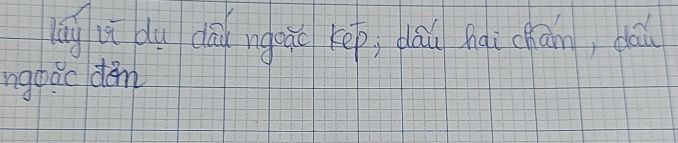 lấy ví dụ dấu ngoặc kép; dấu hai chấm, dấu
ngoặc đơn